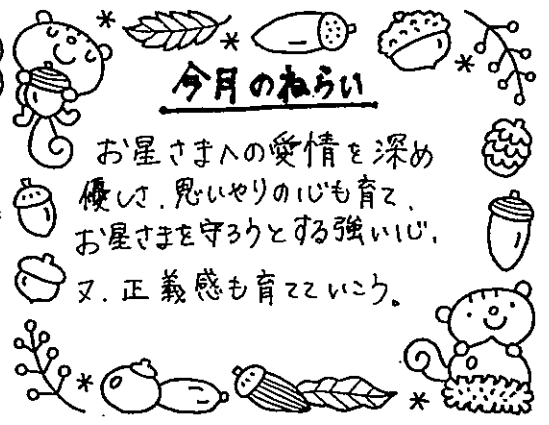 今月のねらい
お星さまへの愛情を深め
優しさ、思いやりの心も育て、
お星さまを守ろうとする強い心、
又、正義感も育てていこう。